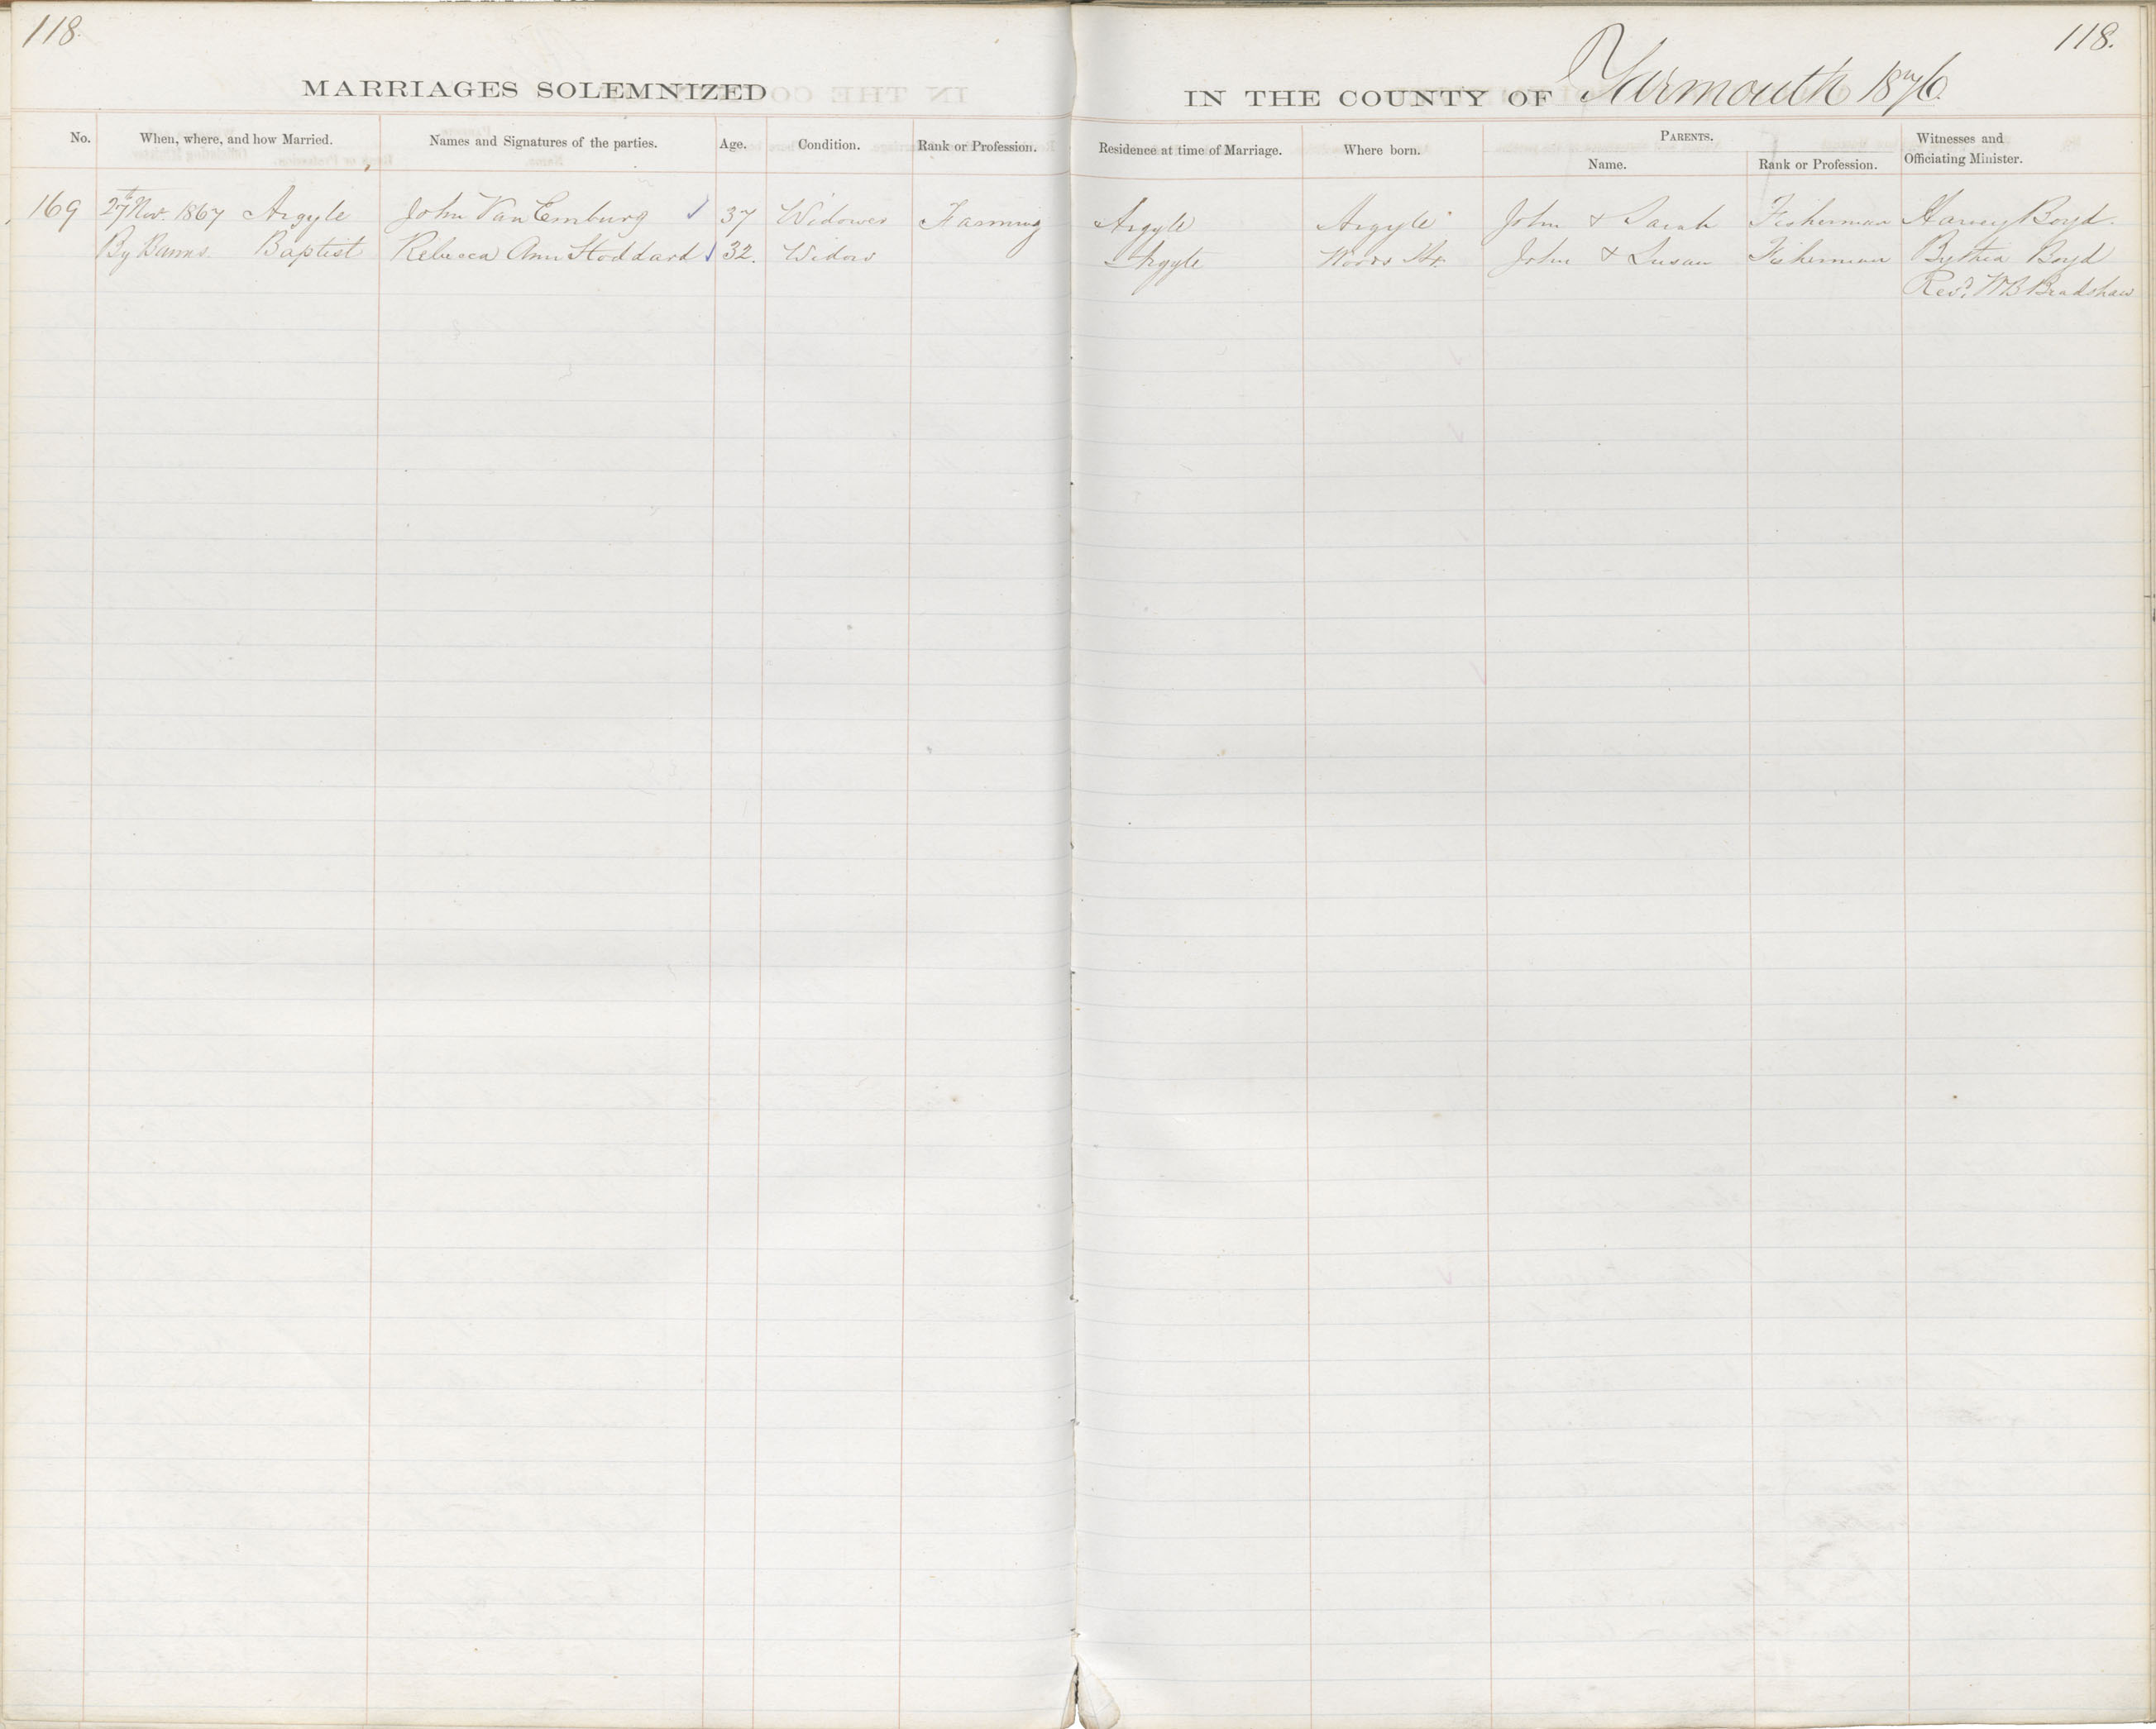 118.
118.
MARRIAGES SOLEMNIZED
IN THE COUNTY OF Yarmouth 1876.
No. When, where, and how Married. Names and Signatures of the parties. Age. Condition. Rank or Profession. Residence at time of Marriage. Where born. PARENTS. Name. Rank or Profession. Witnesses and Officiating Minister.
169 27th Nov. 1867 Argyle John VanEmburg 37 Widower Farming Argyle Argyle John & Sarah Fisherman Harvey Boyd.
By Banns. Baptist Rebecca Ann Stoddard 32. Widow Argyle Woods Hr. John & Susan Fisherman Boyd
Revd. WB Bradshaw